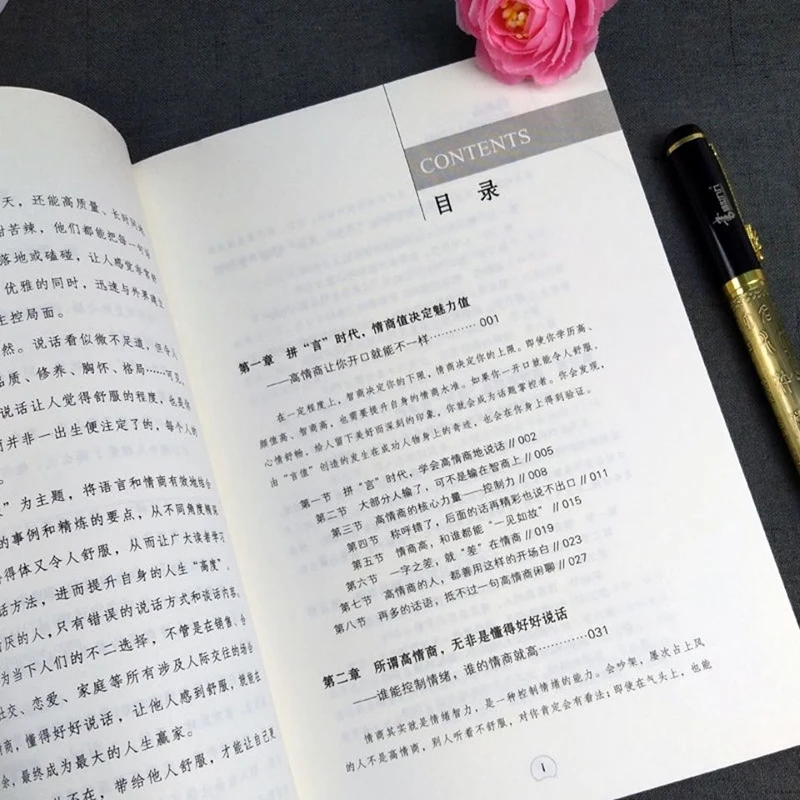 天，还能高质量、长时间地
甘苦辣，他们都能把每一句话
落地或磕碰，让人感觉非常舒
优雅的同时，迅速与外界建立
主控局面。
然。说话看似微不足道，但令人
品质、修养、胸怀、格局……可见，
说话让人觉得舒服的程度，也是
商并非一出生便注定了的，每个人的
”为主题，将语言和情商有效地结合
的事例和精炼的要点，从不同角度
得体又令人舒服，从而让广大读者学习
话方法，进而提升自身的人生“高度”。
讨厌的人，只有错误的说话方式和谈话内容。
为当下人们的不二选择，不管是在销售、
社交、恋爱、家庭等所有涉及人际交往的场合
商，懂得好好说话，让他人感到舒服，就能在
余，最终成为最大的人生赢家。
不在，带给他人舒服，才能让自己更
CONTENTS
目 录
第一章 拼“言”时代，情商值决定魅力值
——高情商让你开口就能不一样………… 001
在一定程度上，智商决定你的下限，情商决定你的上限。即使你学历高、
颜值高、智商高，也需要提升自身的情商水准。如果你一开口就能令人舒服、
心情舒畅，给人留下美好而深刻的印象，你就会成为话题掌控者。你会发现，
由“言值”创造的发生在成功人物身上的奇迹，也会在你身上得到验证。
第一节 拼“言”时代，学会高情商地说话 // 002
第二节 大部分人输了，可不是输在智商上 // 005
第三节 高情商的核心力量——控制力 // 008
第四节 称呼错了，后面的话再精彩也说不出口 // 011
第五节 情商高，和谁都能“一见如故” // 015
第六节 一字之差，就“差”在情商 // 019
第七节 高情商的人，都善用这样的开场白 // 023
第八节 再多的话语，抵不过一句高情商闲聊 // 027
第二章 所谓高情商，无非是懂得好好说话
——谁能控制情绪，谁的情商就高…………031
情商其实就是情绪智力，是一种控制情绪的能力。会吵架，屡次占上风
的人不是高情商，别人听着不舒服，对你肯定会有看法；即使在气头上，也能
1